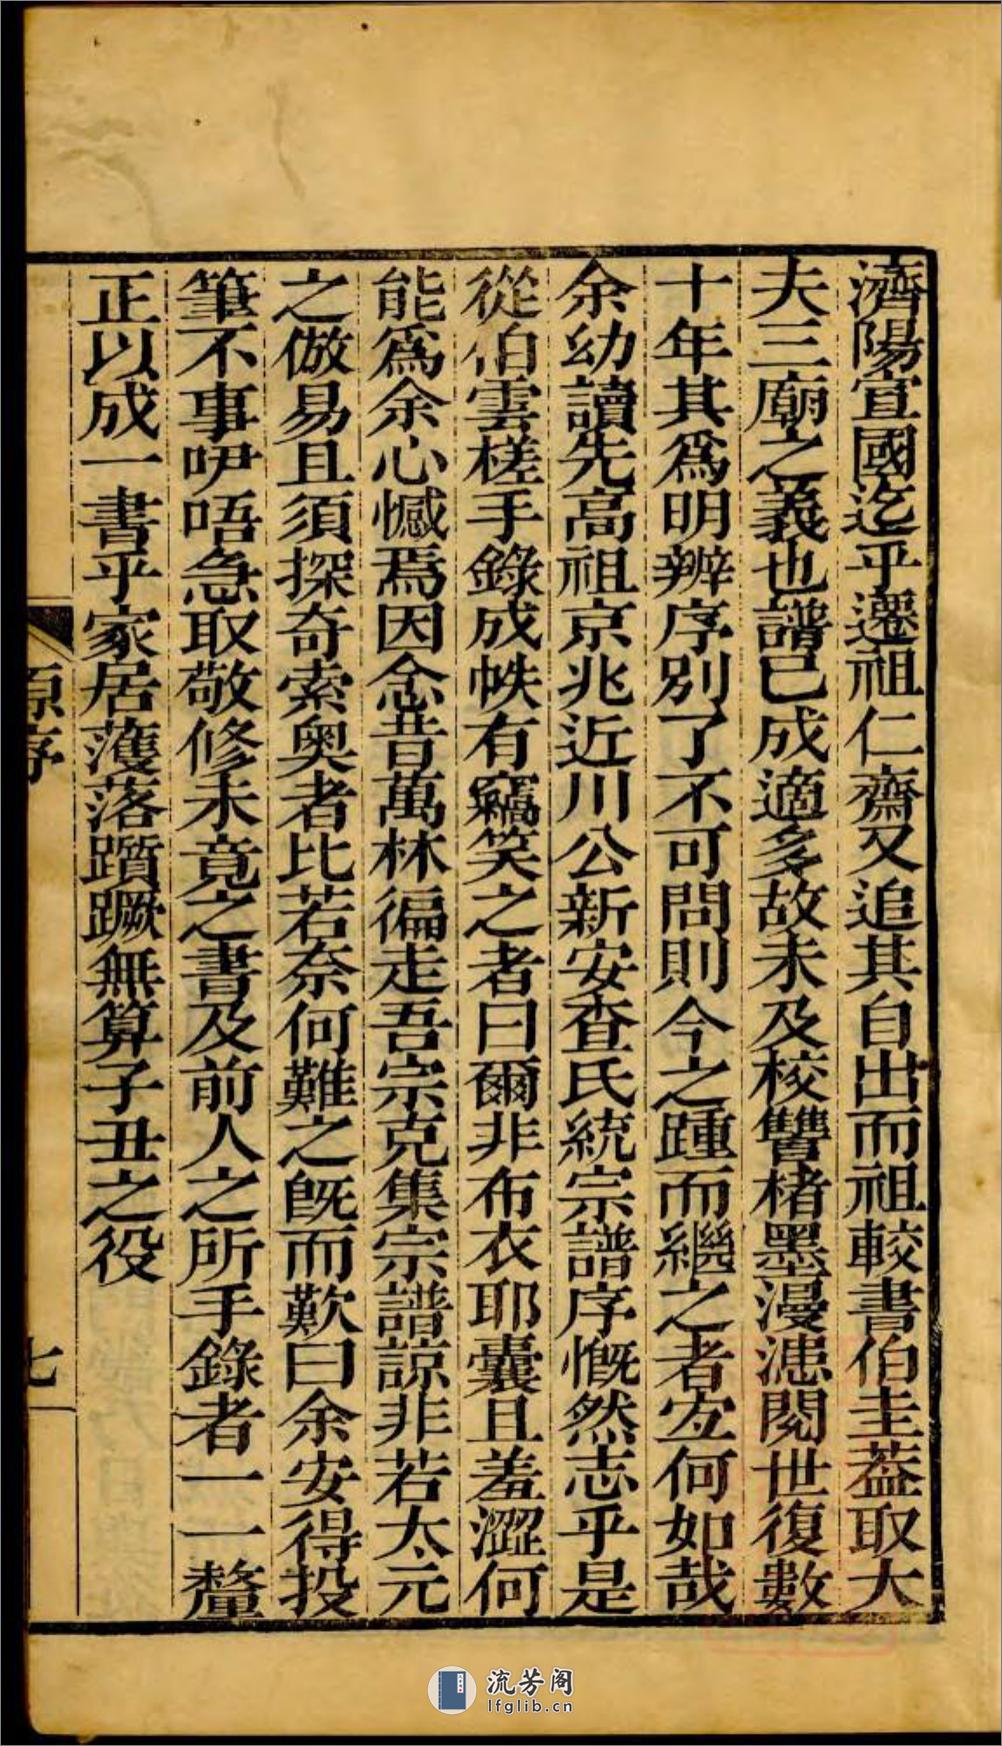 濟陽宣國迄乎遷祖仁齋又追其自出而祖較書伯圭葢取大
夫三廟之義也譜已成適多故未及校讐楮墨漫漶閱世復數
十年其爲明辨序別了不可問則今之踵而繼之者宐何如哉
余幼讀先高祖京兆近川公新安查氏統宗譜序慨然志乎是
從伯雲槎手錄成帙有竊笑之者曰爾非布衣耶囊且羞澀何
能爲余心憾焉因念昔萬林徧走吾宗克集宗譜諒非若太元
之倣易且須探奇索奧者比若奈何難之旣而歎曰余安得投
筆不事咿唔急取敬修未竟之書及前人之所手錄者一一釐
正以成一書乎家居蒦落躓蹶無算子丑之役
原序
七
流芳阁
lfglib.cn